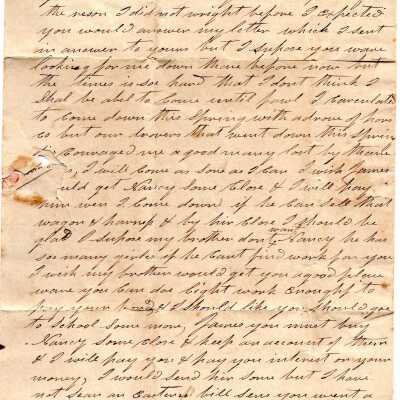 the reson I did not wright before I expected
you would answer my letter which I sent
in answer to yours but I supose you ware
looking for me down there before now but
the times is soe hard that I dont think I
Shal be abel to Come until I Carculated
to Come down this Spring with a drove of hors
es but our that went down this Spring
me a good many lost by
I will Come as sone as I Can I wish James
would get Nancy Some Close & I will pay
him wen I Come down if he Can Sell that
wagon & harness & by hir Close I Should be
glad I supose my brother dont want Nancy he has
soe many girles if he Cant find work for you
I wish my brother would get you a good place
ware you Can doe Eight work Enought to
pay your bord & I Should like you Should goe
to School some more, James you must buy
Nancy Some Close & keep an account of them
& I will pay you & pay you interest on your
money, I would Send him Some but I have
not Sean an Eastern bill Sens you went a